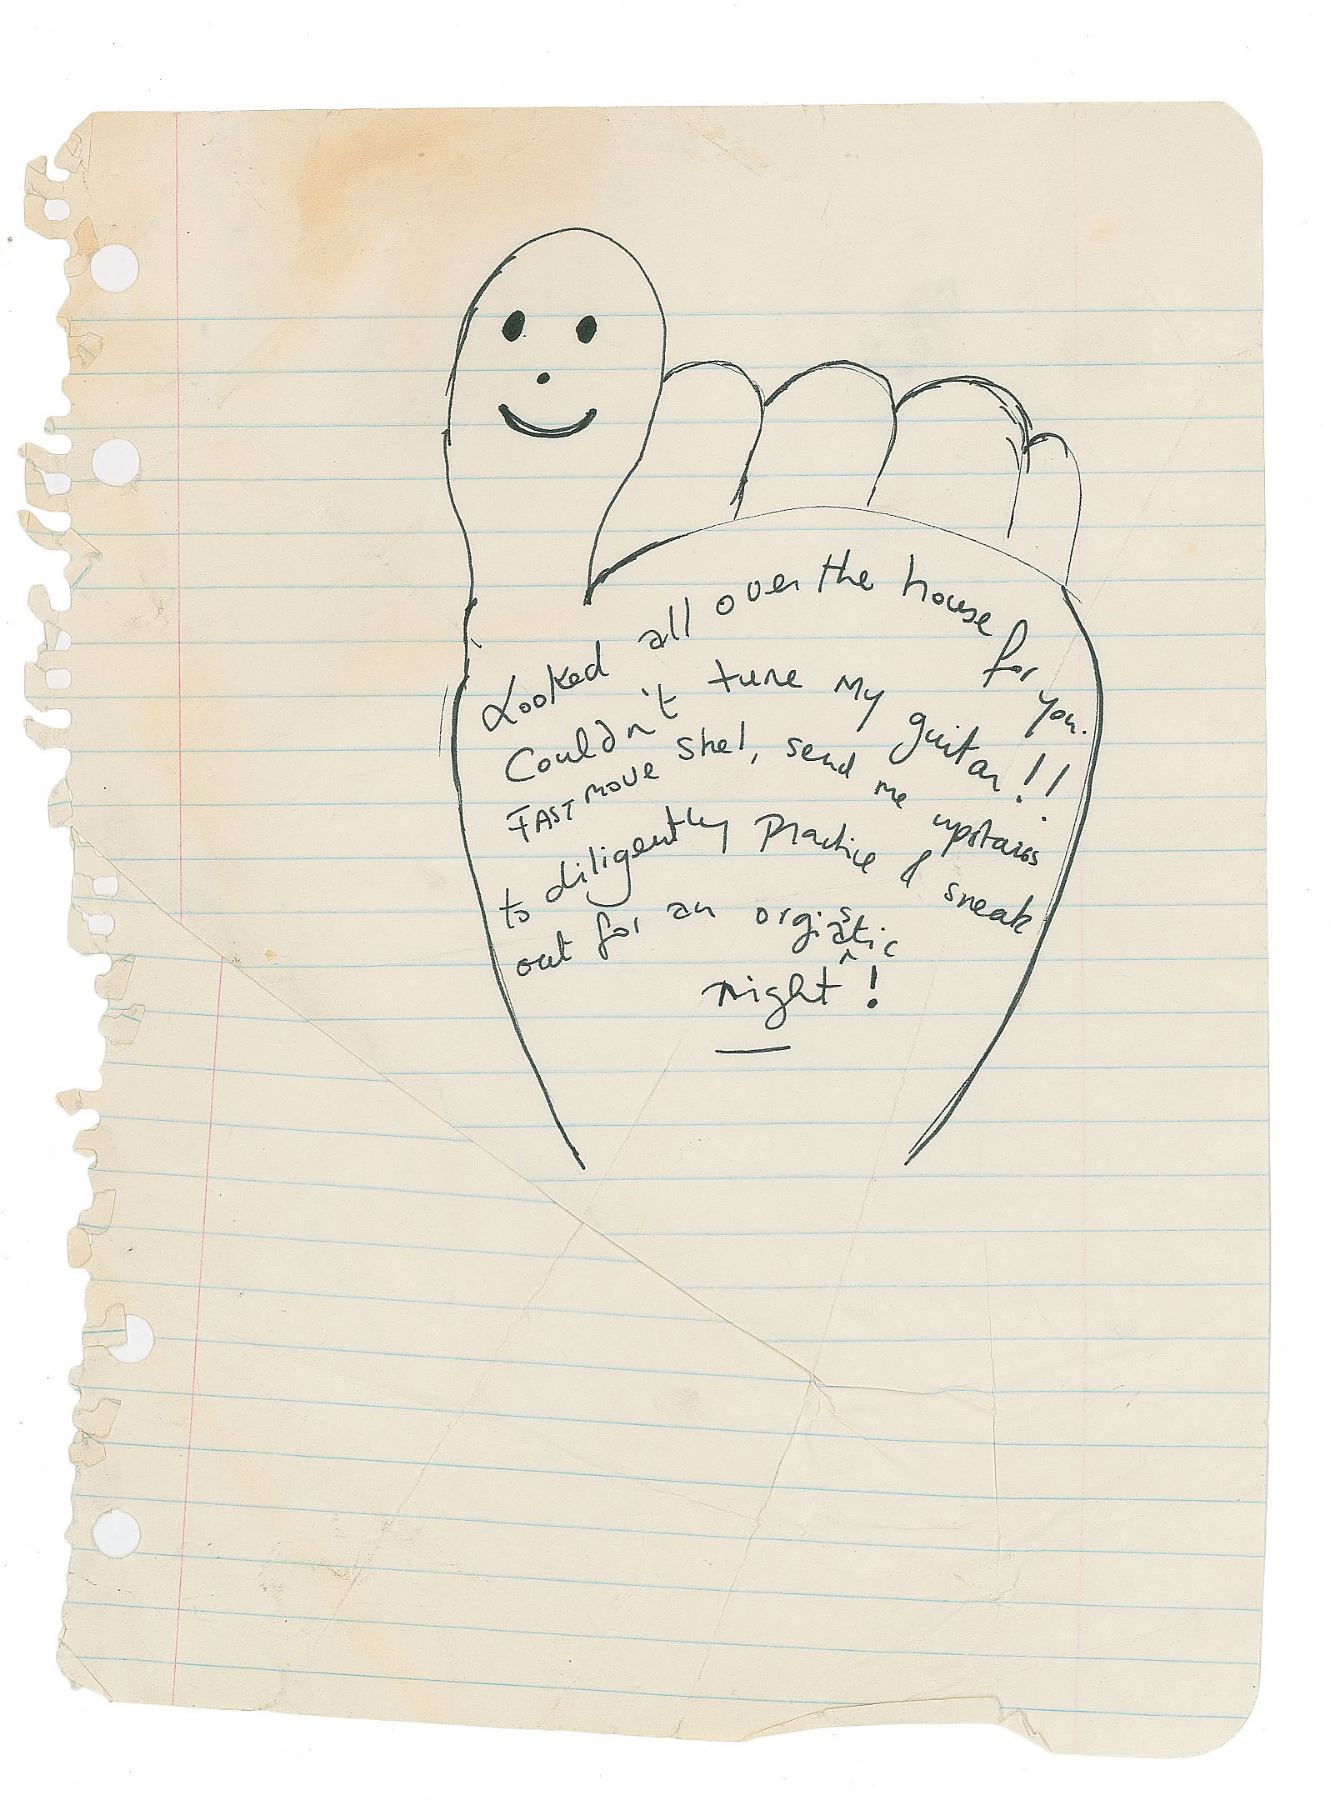 Looked all over the house for you.
Couldn't tune my guitar!!
FAST move Shel, send me upstairs
to diligently practice & sneak
out for an orgiastic
night!